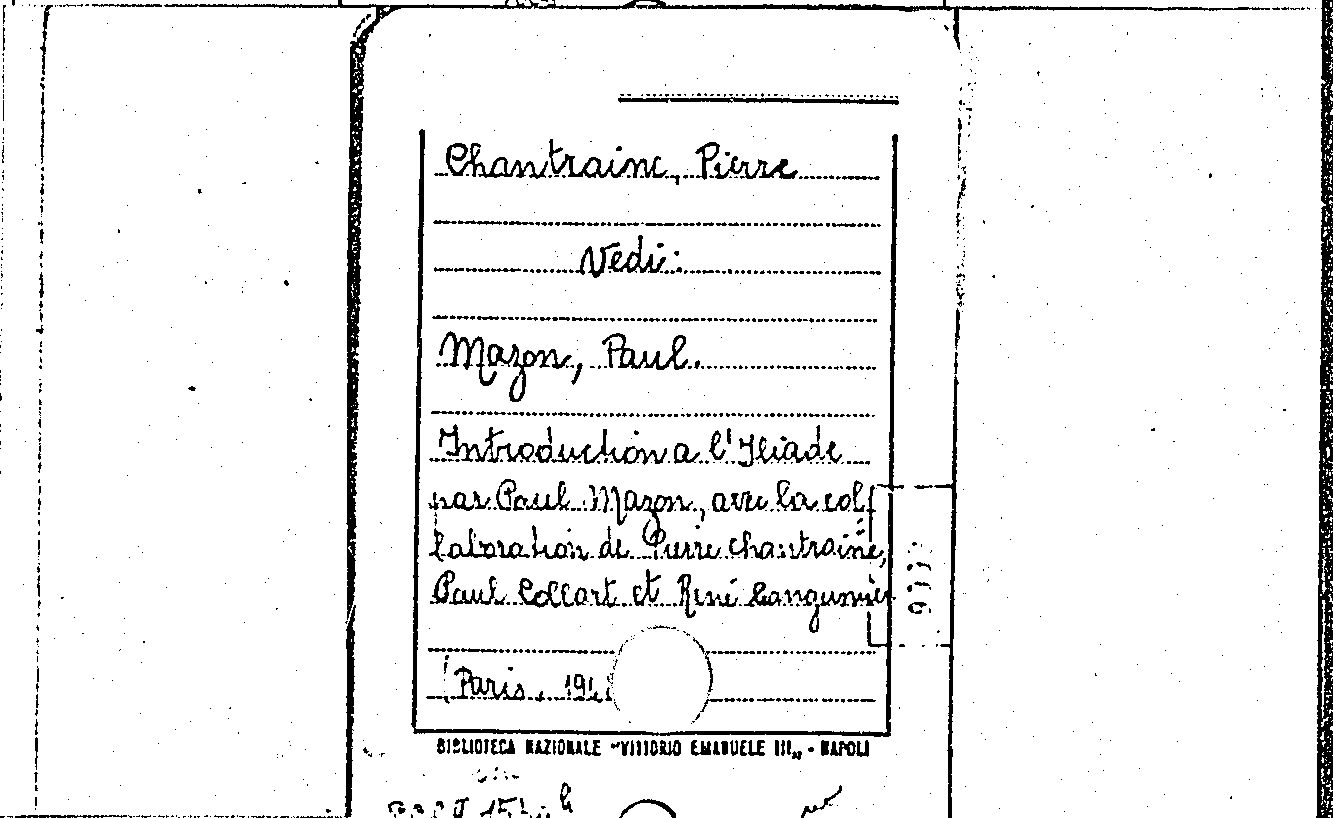 Chantraine, Pierre
Vedi:
Mazon, Paul.
Introduction a l'Iliade
par Paul Mazon, avec la col=
laboration de Pierre Chantraine,
Paul Collart et René Langumier
(Paris, 194
BIBLIOTECA NAZIONALE "VITTORIO EMANUELE III„ - NAPOLI